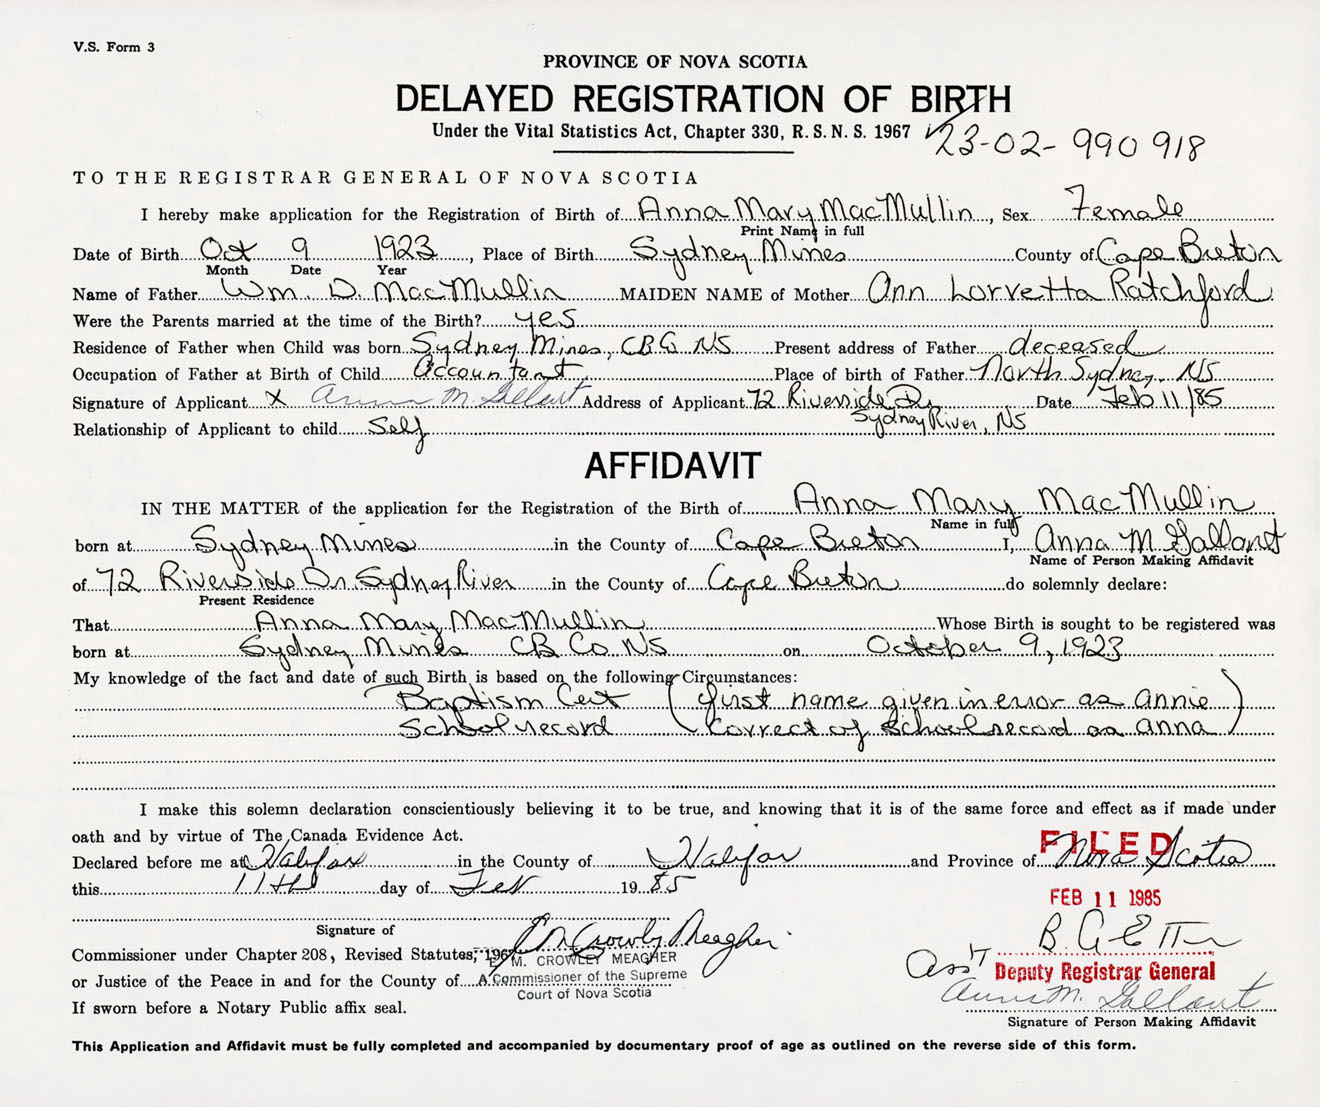 V.S. Form 3
PROVINCE OF NOVA SCOTIA
DELAYED REGISTRATION OF BIRTH
Under the Vital Statistics Act, Chapter 330, R. S. N. S. 1967
23-02-990 918
TO THE REGISTRAR GENERAL OF NOVA SCOTIA
I hereby make application for the Registration of Birth of Anna Mary MacMullin, Sex Female
Print Name in full
Date of Birth Oct 9 1923, Place of Birth Sydney Mines County of Cape Breton
Month Date Year
Name of Father Wm. D. MacMullin MAIDEN NAME of Mother Ann Lorvetta Ratchford
Were the Parents married at the time of the Birth? yes
Residence of Father when Child was born Sydney Mines, CBG NS Present address of Father deceased
Occupation of Father at Birth of Child Accountant Place of birth of Father North Sydney, NS
Signature of Applicant X Anna M. Gallant Address of Applicant 72 Riverside Dr Date Feb 11/85
Sydney River, NS
Relationship of Applicant to child Self
AFFIDAVIT
IN THE MATTER of the application for the Registration of the Birth of Anna Mary MacMullin
Name in full
born at Sydney Mines in the County of Cape Breton I, Anna M Gallant
Name of Person Making Affidavit
of 72 Riverside Dr. Sydney River in the County of Cape Breton do solemnly declare:
Present Residence
That Anna Mary MacMullin Whose Birth is sought to be registered was
born at Sydney Mines CB Co NS on October 9, 1923
My knowledge of the fact and date of such Birth is based on the following Circumstances:
Baptism Cert (first name given in error as Annie
School record correct of school record as Anna)
I make this solemn declaration conscientiously believing it to be true, and knowing that it is of the same force and effect as if made under
oath and by virtue of The Canada Evidence Act.
FILED
Declared before me at Halifax in the County of Halifax and Province of Nova Scotia
this 11th day of Feb 19 85
FEB 11 1985
Signature of
B. G. Etter
Commissioner under Chapter 208, Revised Statutes, 1967
E. M. CROWLEY MEAGHER
Ass't Deputy Registrar General
or Justice of the Peace in and for the County of
A Commissioner of the Supreme
Court of Nova Scotia
Anna M. Gallant
If sworn before a Notary Public affix seal.
Signature of Person Making Affidavit
This Application and Affidavit must be fully completed and accompanied by documentary proof of age as outlined on the reverse side of this form.